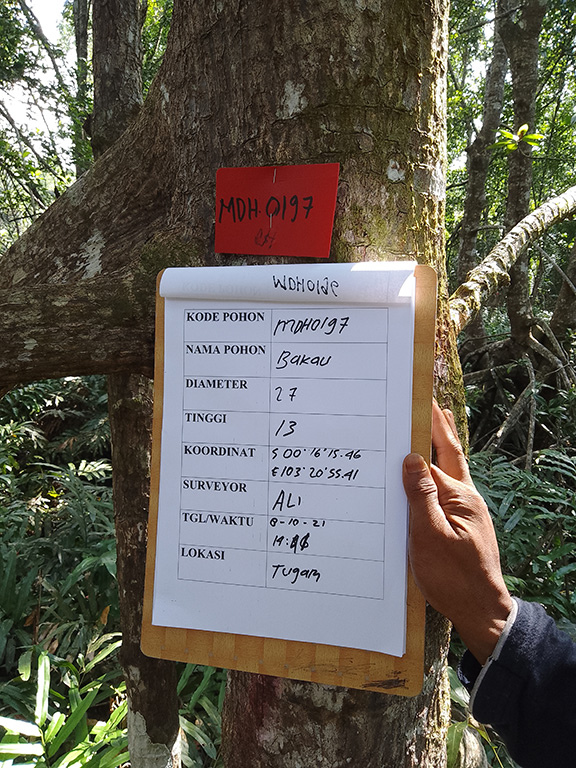 MDH.0197
KODE POHON MDH0197
NAMA POHON Bakau
DIAMETER 27
TINGGI 13
KOORDINAT S 00° 16' 15.46
E 103° 20' 55.41
SURVEYOR ALI
TGL/WAKTU 8-10-21
14:
LOKASI Tugam